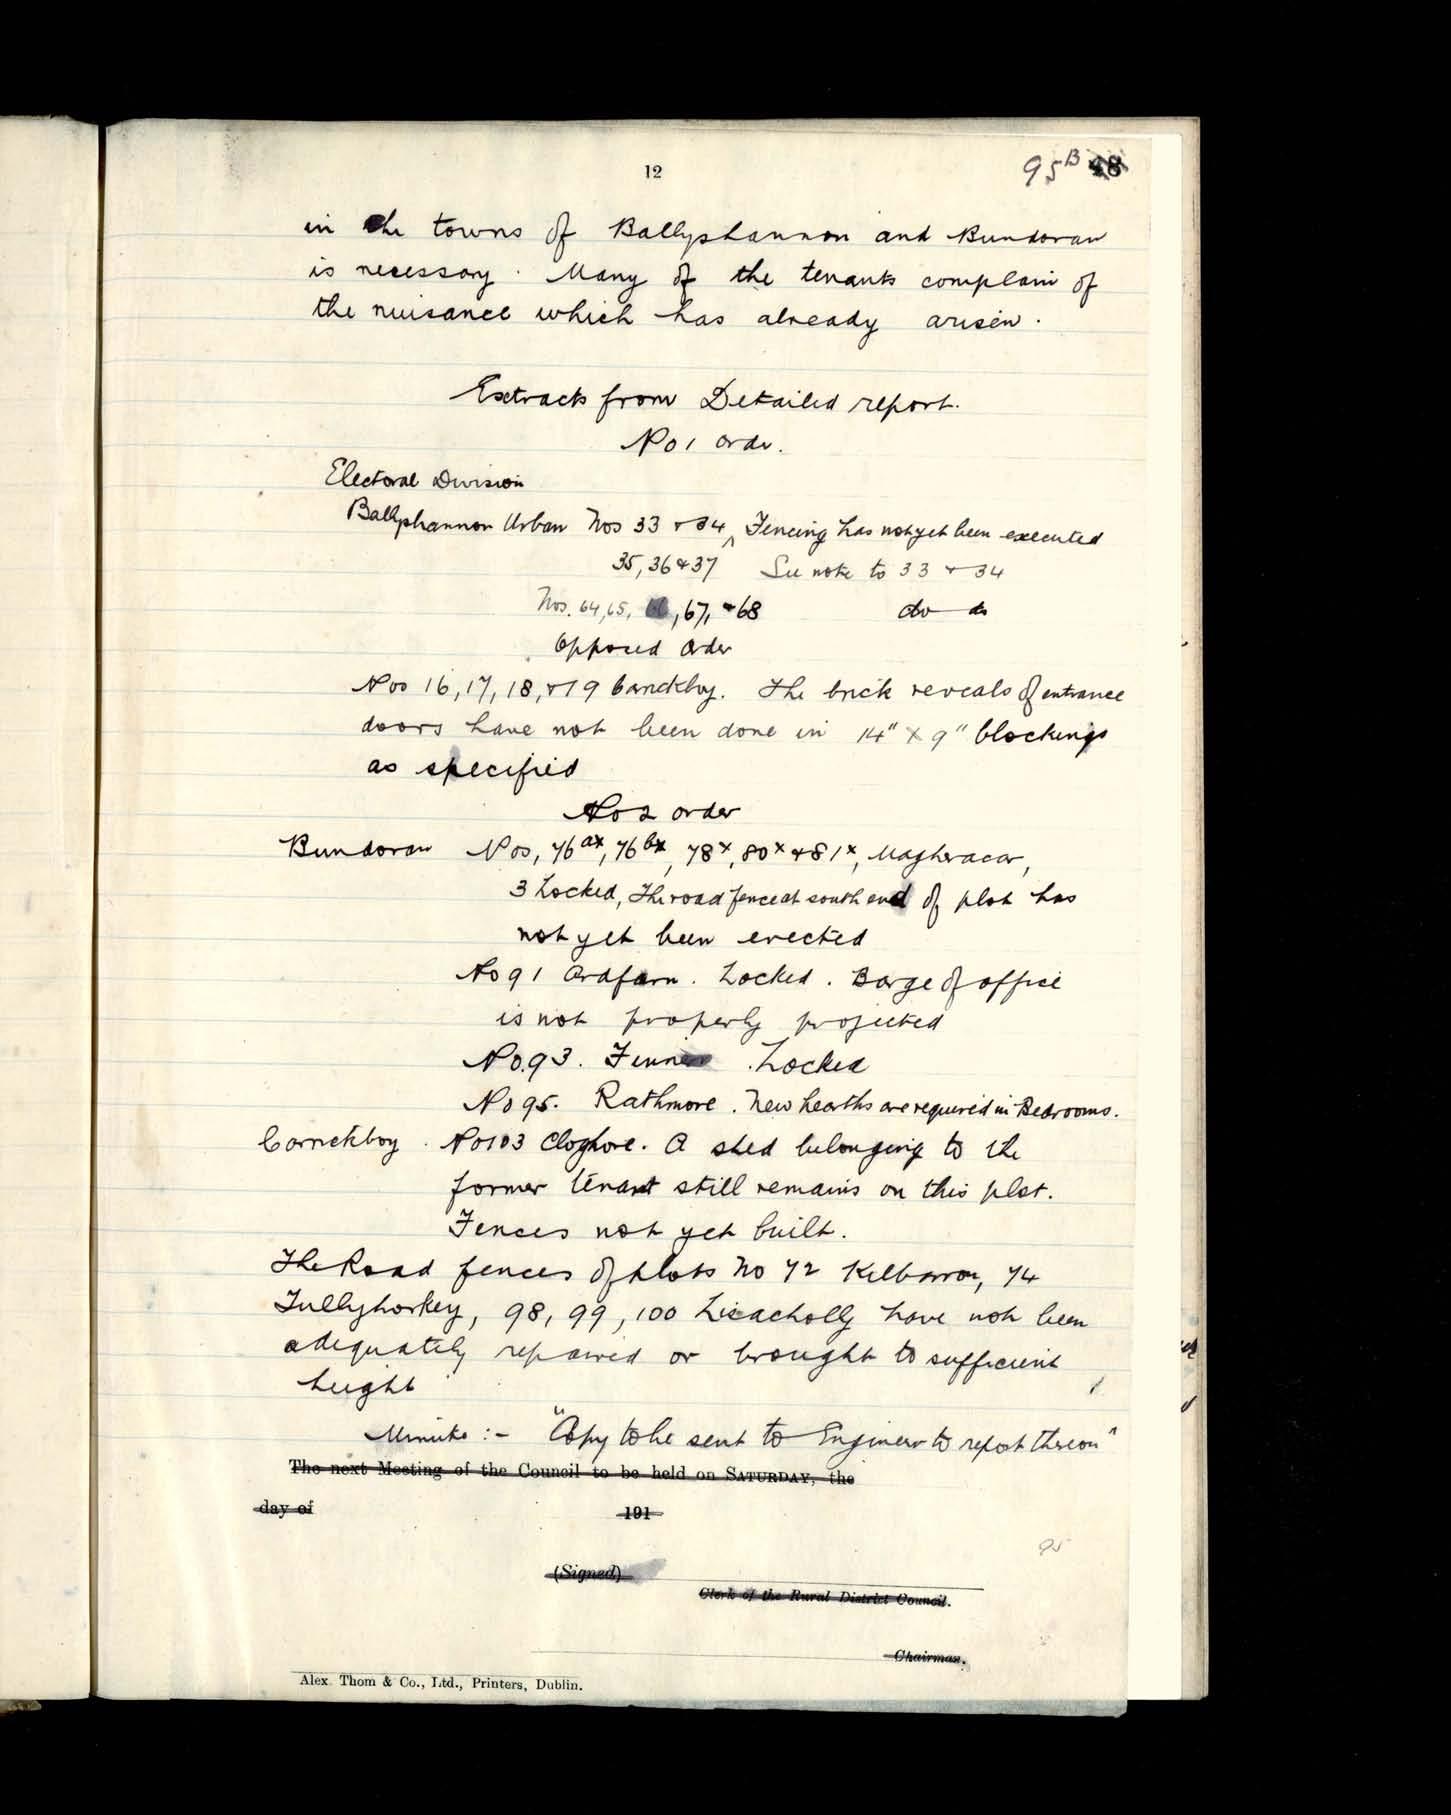 12
95 B 48
in the towns of Ballyshannon and Bundoran
is necessary. Many of the tenants complain of
the nuisance which has already arisen.
Extracts from Detailed report.
No 1 order.
Electoral Division
Ballyshannon Urban Nos 33 & 34, Fencing has not yet been executed
35, 36 & 37 See note to 33 & 34
Nos. 64, 65, 66, 67, & 68 do do
Opposed Order
Nos 16, 17, 18, & 19 Carrickboy. The brick reveals of entrance
doors have not been done in 14" X 9" blockings
as specified
No 2 order
Bundoran Nos, 76ax, 76bx, 78x, 80x & 81x, Magheracar,
3 Locked, The road fence at south end of plot has
not yet been erected
No 91 Ardfarn. Locked. Barge of office
is not properly projected
No. 93. Finner. Locked
No 95. Rathmore. New hearths are required in Bedrooms.
Carrickboy. No 103 Cloghore. A shed belonging to the
former tenant still remains on this plot.
Fences not yet built.
The Road fences of plots No 72 Kilbarron, 74
Tullyhorkey, 98, 99, 100 Lisacholly have not been
adequately repaired or brought to sufficient
height
Minute :- "Copy to be sent to Engineer to report thereon"
The next Meeting of the Council to be held on SATURDAY, the
day of 191
95
(Signed)
Clerk of the Rural District Council.
Chairman.
Alex. Thom & Co., Ltd., Printers, Dublin.